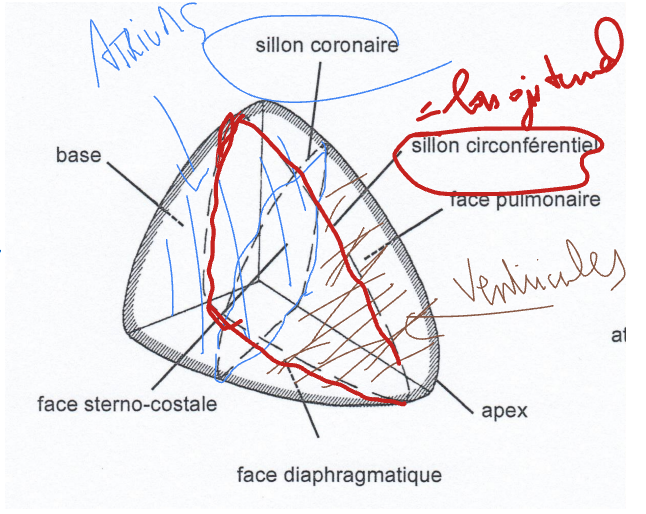 ATRIUMS
sillon coronaire
= longitud
sillon circonférentiel
base
face pulmonaire
Ventricules
at
face sterno-costale
apex
face diaphragmatique